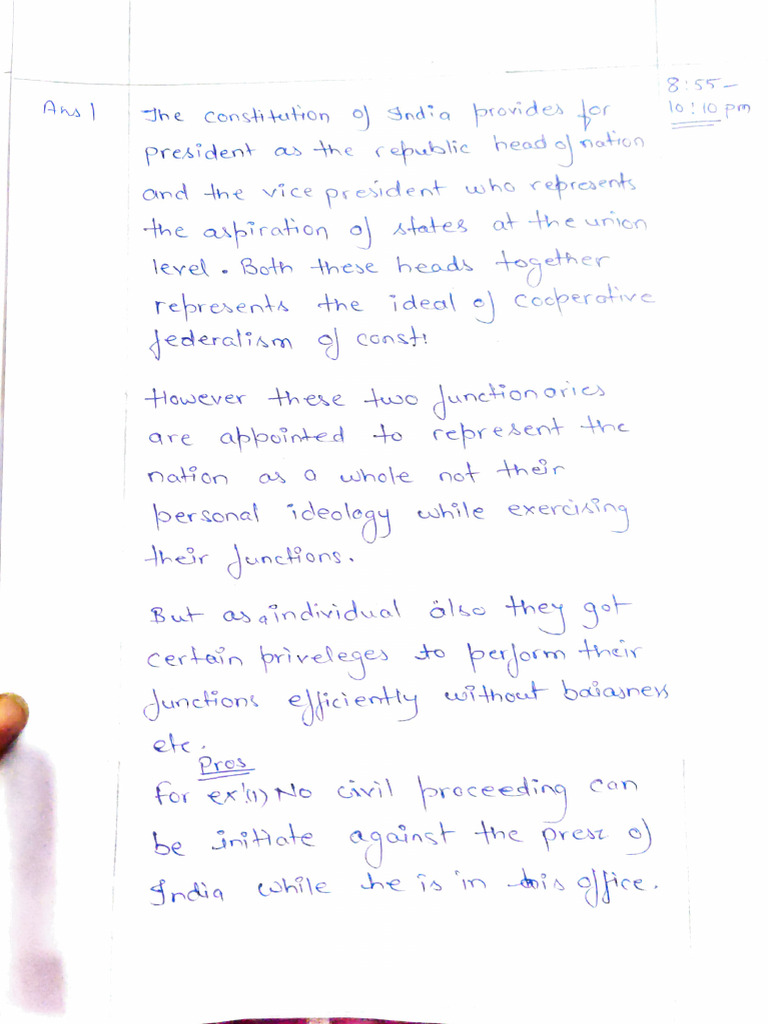 8:55-
10:10 pm
Ans 1
The constitution of India provides for
president as the republic head of nation
and the vice president who represents
the aspiration of states at the union
level. Both these heads together
represents the ideal of cooperative
federalism of const!
However these two functionaries
are appointed to represent the
nation as a whole not their
personal ideology while exercising
their functions.
But as a individual also they got
certain priveleges to perform their
functions efficiently without baiasness
etc.
Pros
For ex! (1) No civil proceeding can
be initiate against the presz of
India while he is in his office.